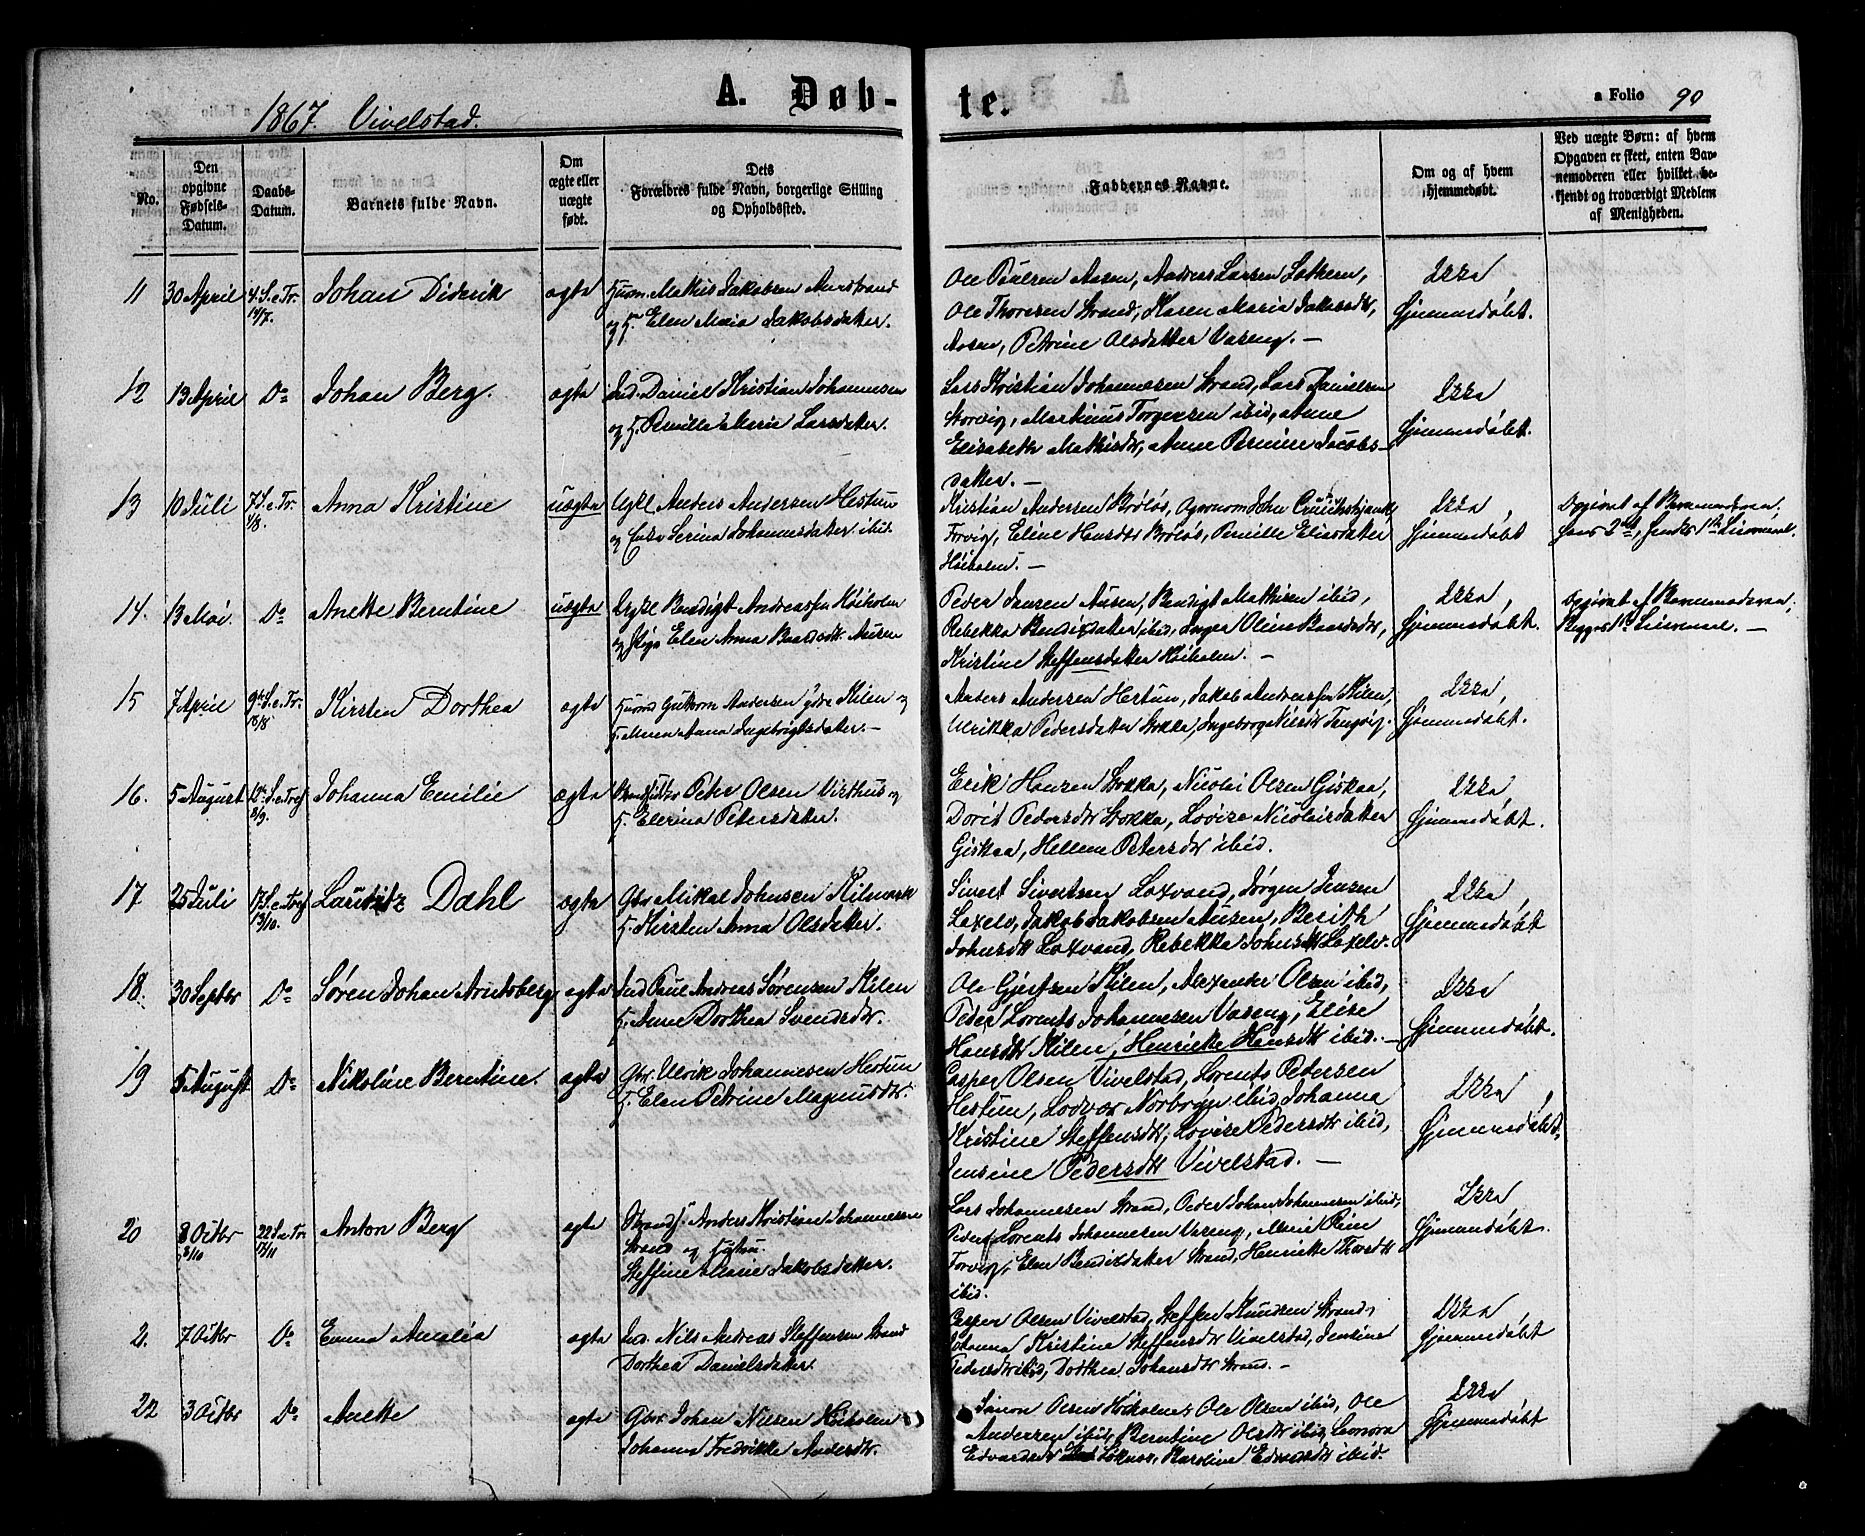 1867. Vivelstad.
A. Døb-
te.
a Folio 90
No.
Den opgivne Fødsels-Datum.
Daabs-Datum.
Barnets fulde Navn.
Om ægte eller uægte født.
Dets
Forældres fulde Navn, borgerlige Stilling
og Opholdssted.
Faddernes Navne.
Om og af hvem
hjemmedøbt.
Ved uægte Børn: af hvem
Opgaven er skeet, enten Bar-
nemoderen eller hvilket be-
kjendt og troværdigt Medlem
af Menigheden.
11 30 April 4. S. e. Tr. 14/7. Johan Diderik ægte Husm. Mathis Jakobsen Aunstrand
og H. Elen Maria Jakobsdater.
Ole Paulsen Aasen, Anders Larsen
Ole Thoresen Strand, Karen Maria Jakobsdtr,
Aasen, Petrine Olsdatter Vaseng. —
Ikke
hjemmedøbt.
12 13 April Do Johan Berg. ægte Ind. Daniel Kristian Johannesen
og H. Pernille Marie Larsdater.
Lars Kristian Johannesen Strand, Lars Danielsen
Storvig, Martinus Torgersen ibid, Anne
Elisabeth Mathisdtr, Anne Pernille Jacobs-
dater. —
Ikke
hjemmedøbt.
13 10 Juli 7 S. e. Tr. 4/8. Anna Kristine uægte Ugkl Anders Andersen Hestun
og Enke Serina Johannesdater ibid.
Kristian Andersen Broløs, Agronom John
Forvig, Eline Hansdtr Broløs, Pernille Eliasdater
Høiholm. —
Ikke
hjemmedøbt
Opgivet af Barnemoderen,
hans 2det, hendes 1ste Leiermaal.
14. 13 Mai. Do Anette Berntine uægte Ugkl Bendigt Andreassen Høiholm
og Pige Elen Anna Baardsdtr Ausen
Peder Jensen Ausen, Bendigt Mathisen ibid,
Rebekka Bendixdater ibid, Inger Oline Baardsdtr,
Kristine Steffensdater Høiholm. —
Ikke
hjemmedøbt.
Opgivet af Barnemoderen,
Begges 1ste Leiermaal. —
15 7 April 9de S. e. Tr. 18/8 Kirsten Dorthea ægte Husmd Guttorm Andersen ydre Kilen og
H. Anna Ingebrigtsdater. —
Anders Andersen Hestun, Jakob Andreassen Kilen,
Ulrikka Pedersdater Stokka, Ingeborg Nilsdtr Tengvig.
Ikke,
hjemmedøbt.
16. 5 August 12te S. e. Tref 8/9. Johanna Emilie ægte Strandsidder Peter Olsen Visthus og
H. Elerina Petersdater.
Erik Hansen Stokka, Nicolai Olsen Giskaa,
Dorit Pedersdtr Stokka, Lovise Nicolaisdater
Giskaa, Hellene Petersdtr ibid.
Ikke
hjemmedøbt.
17 25 Juli 17 S. e. Tref 13/10. Lauritz Dahl ægte Gbr Mikal Johnsen Kilmark
H. Kirsten Anna Olsdater.
Sivert Sivertsen Laxvand, Jørgen Jensen
Laxelv, Jakob Jakobsen Ausen, Berith
Johnsdtr Laxvand, Rebekka Johnsdtr Laxelv.
Ikke
hjemmedøbt
18. 30 Septbr Do Søren Johan Arntsberg ægte Ind Paul Andreas Sørensen Kilen
H. Anne Dorthea Svendsdtr.
Ole Gjertsen Kilen, Alexander Olsen ibid,
Peder Lorents Johannesen Vaseng, Elise
Hansdtr Kilen, Henrikke Hansdtr ibid. —
Ikke
hjemmedøbt.
19 5 August Do Nikoline Berntine. ægte Gbr. Ulrik Johannesen Hestun
H. Elen Petrine Magnusdtr.
Casper Olsen Vivelstad, Lorents Pedersen
Hestun, Lodvor Norbrygn ibid, Johanna
Kristine Steffensdtr, Lovise Pedersdtr ibid,
Jensine Pedersdtr Vivelstad. —
Ikke
hjemmedøbt,
20 8 Octbr 8/10 22 S. e. Tr. 17/11 Anton Berg ægte Strands. Anders Kristian Johannesen
Strand og Hustru
Steffine Marie Jakobsdatter.
Lars Johannesen Strand, Peder Johan Johannesen ibid,
Peder Lorents Johannesen Vaseng, Marie
Forvig, Elen Bendiksdatter Strand, Henrikke Thorsdtr
ibid.
Ikke
hjemmedøbt.
21. 7 Octbr Do Emma Amalia ægte Ind. Nils Andreas Steffensen Strand
Dorthea Danielsdater.
Casper Olsen Vivelstad, Steffen Knudsen Strand,
Johanna Kristine Steffensdtr Vivelstad, Jensine
Pedersdtr ibid, Dorthea Johansdtr Strand. —
Ikke
hjemmedøbt
22 3 Octbr Do Anette ægte Gbr. Johan Nilsen Høiholm
Johanna Fredrikke Andersdtr.
Simon Olsen Høiholm, Ole Olsen ibid, Ole
Andersen ibid, Berntine Olsdtr ibid, Leonora
Edvardsdtr Løknes, Karoline Edvardsdtr ibid.
Ikke,
hjemmedøbt